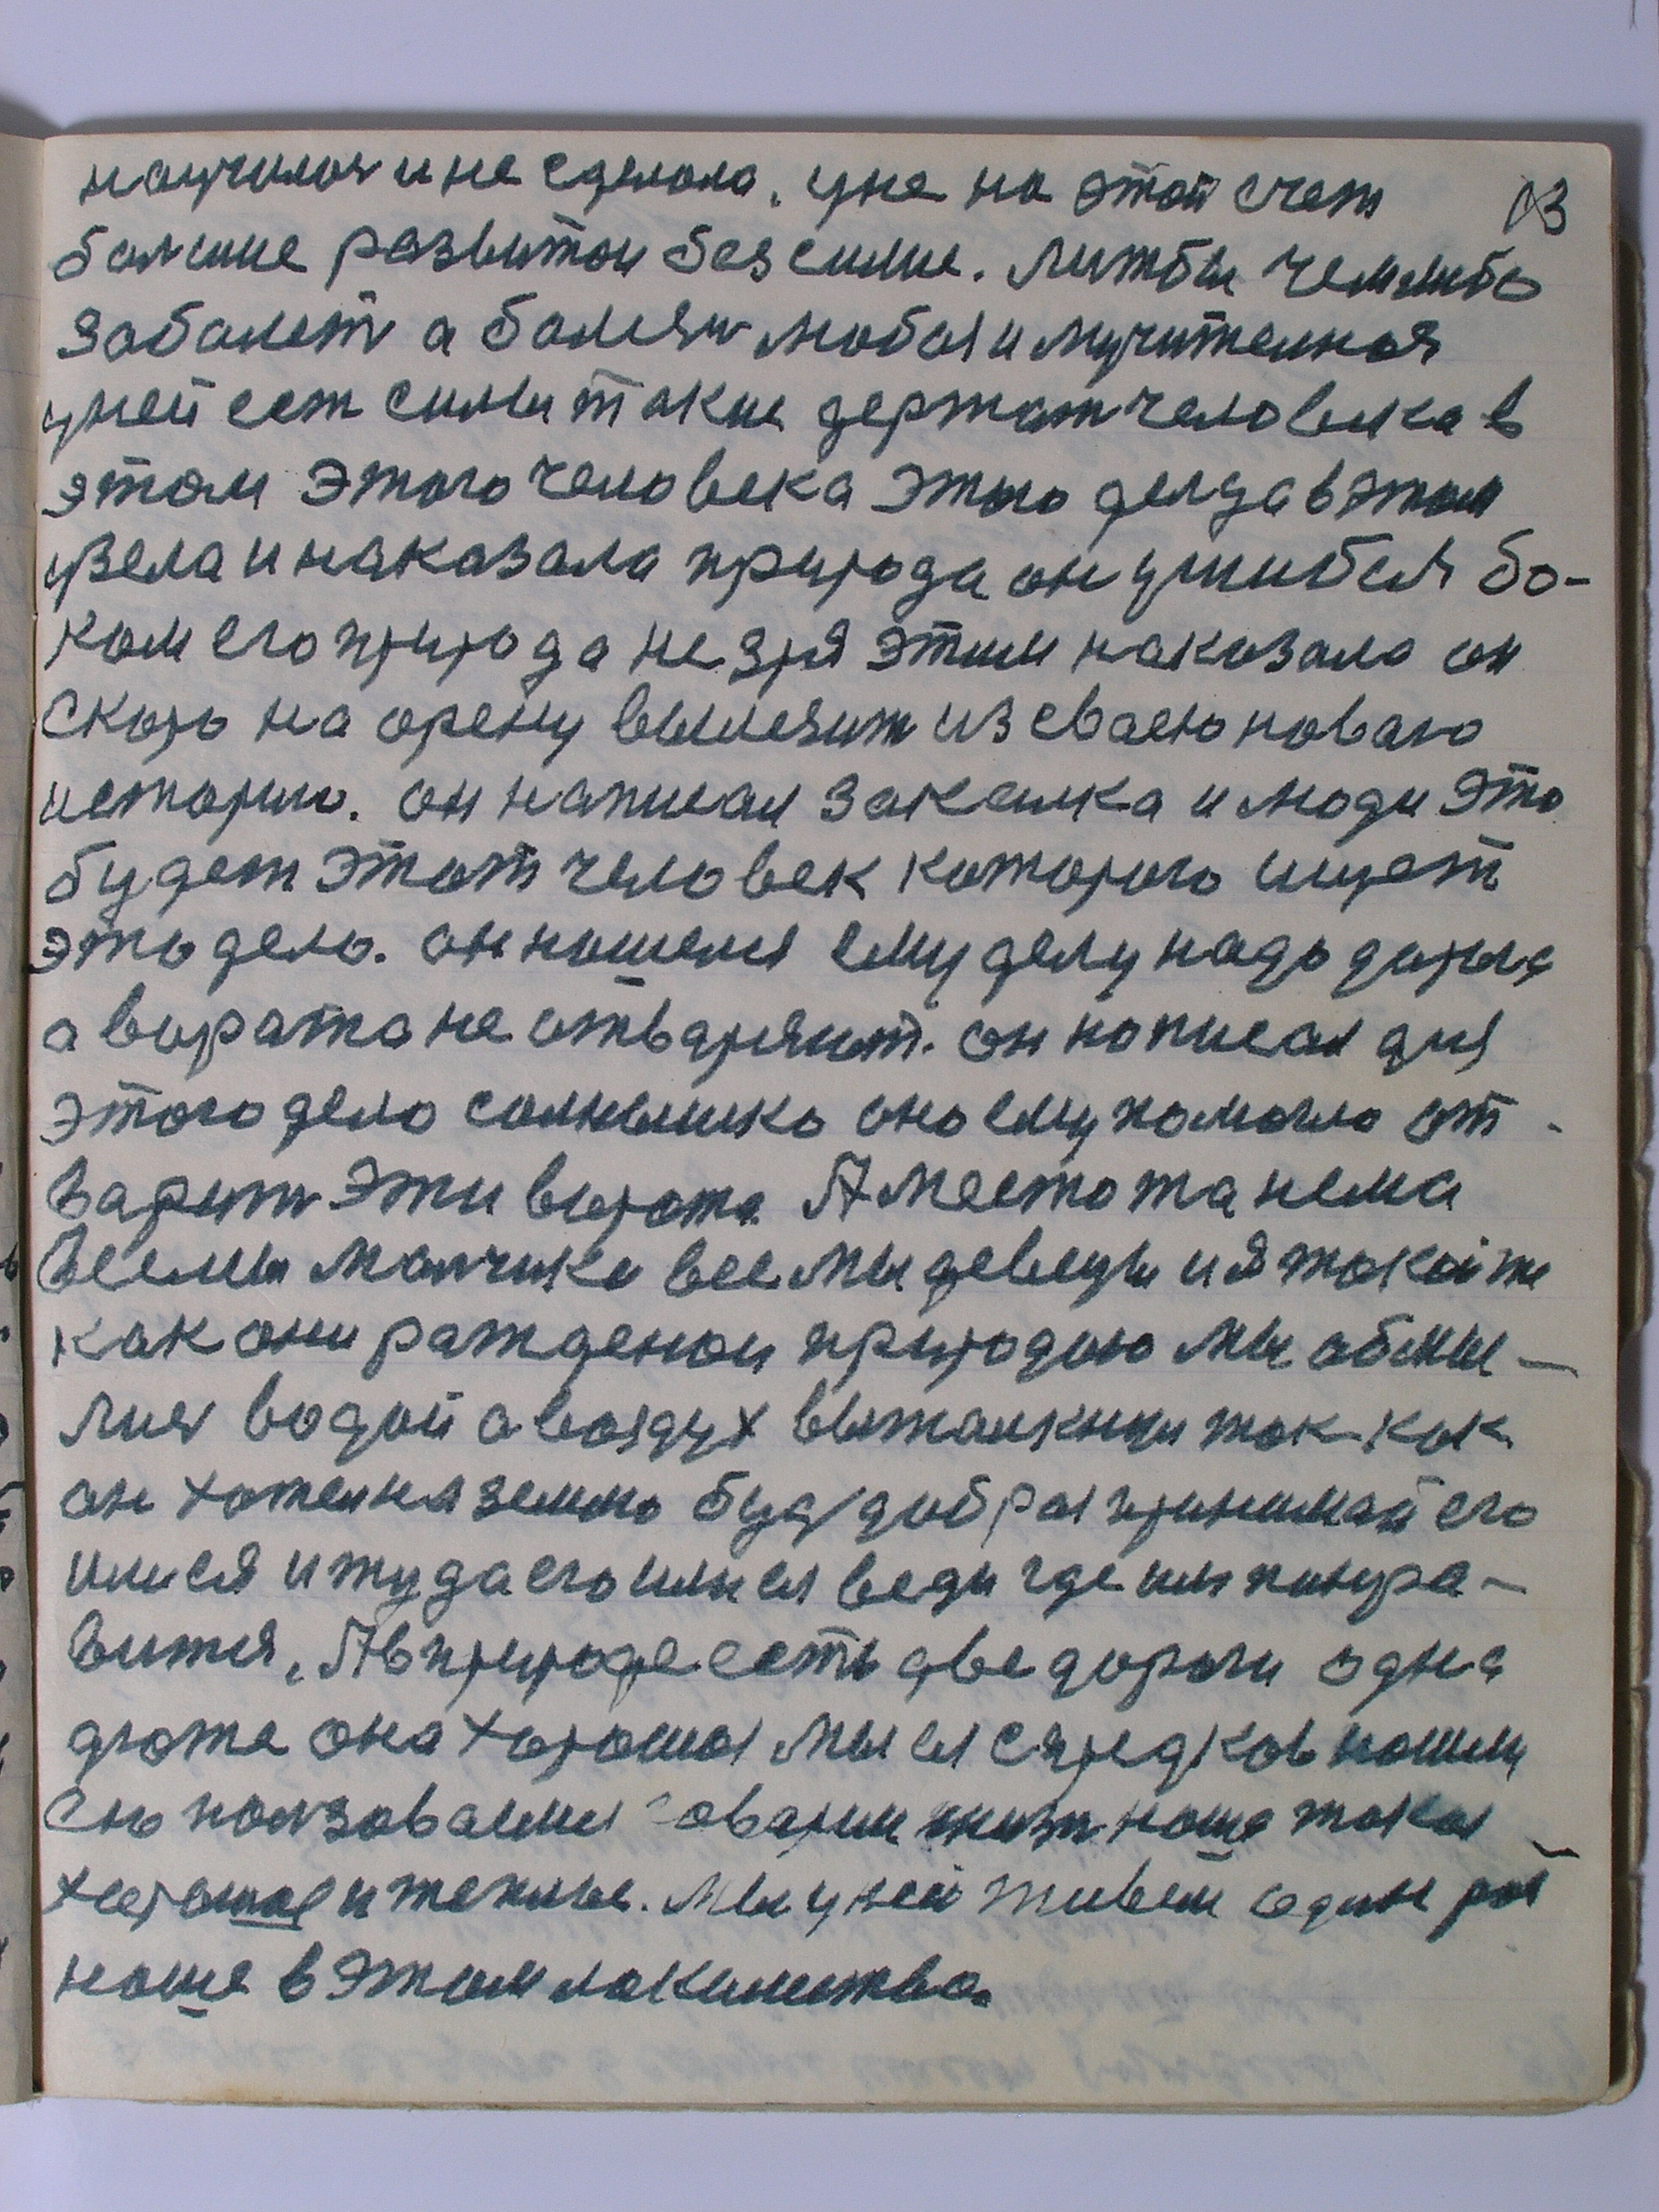 научилася и не сделала. уне на этой счет 03
балшие развитои безсилие. литбы чем либо
заболет а болезн любая и мучителная
уней ест силы такие держат человека в
этам этого человека этого делца в этом
узела и наказала природа он ушибся бо-
ком его природа не зря этим наказало он
скоро на орену вылезит из сваею новаю
историю. он написал закалка и люди это
будет этот человек которого ищет
это дело. он нашелся ему делу надо дорога
а варата не отваряют. он написал для
этого дело солнышко оно ему помогло от-
варит эти ворота. А место та нема
все мы малчики все мы девецы и я такой ти
как они ражденои природою мы обмы-
лис водой а воздух вытолкнул так как
он хател на землю будь добрая принимай его
имися и туда его имися веди где им понра-
вится. А в природе есть две дороги одна
дюже она хорошая мыся с предков нашим
ею ползоваемся говарим жизн наша такая
хорошае и теплые. Мы у ней живем один рай
наше в этом локинетва.